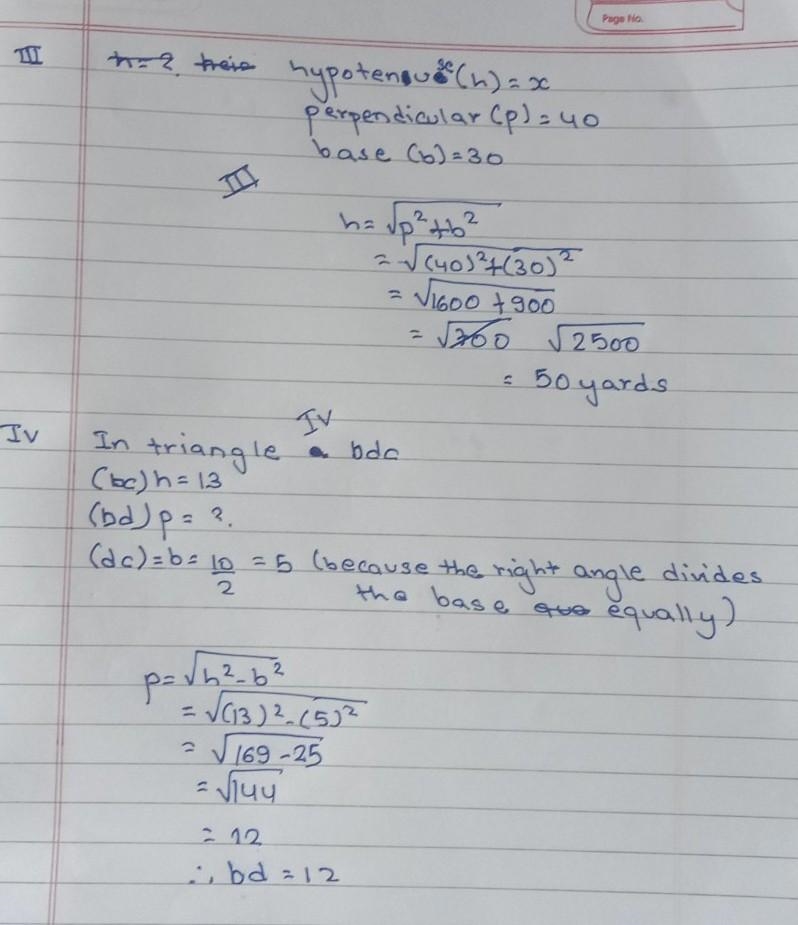 Page No.
III h=? hypotenuse (h) = x
perpendicular (p) = 40
base (b) = 30
III
h = √p² + b²
= √(40)² + (30)²
= √1600 + 900
= √700 √2500
= 50 yards
IV
IV In triangle bdc
(bc) h = 13
(bd) p = ?.
(dc) = b = 10/2 = 5 (because the right angle divides
the base equally)
p = √h² - b²
= √(13)² - (5)²
= √169 - 25
= √144
= 12
∴ bd = 12